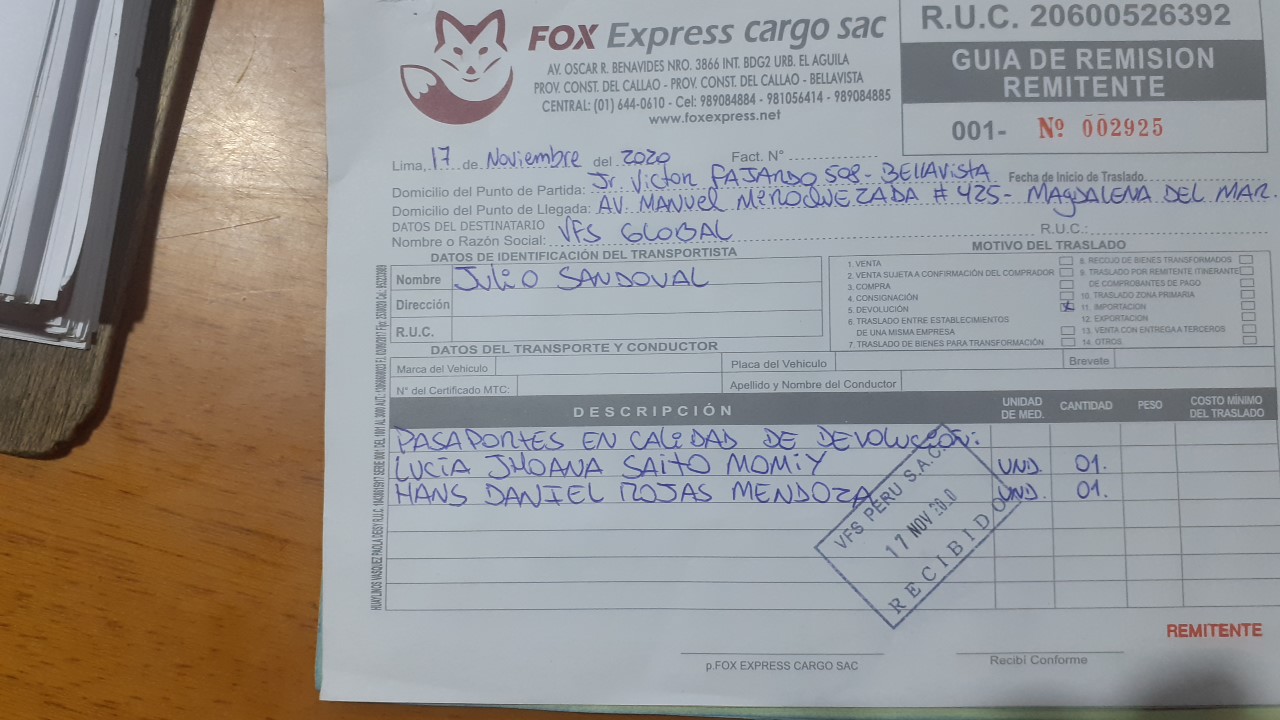 FOX Express cargo sac
AV. OSCAR R. BENAVIDES NRO. 3866 INT. BDG2 URB. EL AGUILA
PROV. CONST. DEL CALLAO - PROV. CONST. DEL CALLAO - BELLAVISTA
CENTRAL: (01) 644-0610 - Cel: 989084884 - 981056414 - 989084885
www.foxexpress.net
R.U.C. 20600526392
GUIA DE REMISION
REMITENTE
001- Nº 002925
Lima, 17 de Noviembre del 2020 Fact. N°
Domicilio del Punto de Partida: Jr Victor FAJARDO 508 - BEllAVistA Fecha de Inicio de Traslado
Domicilio del Punto de Llegada: AV. MANUEL # 425 - MAgDALENA DEL MAR.
DATOS DEL DESTINATARIO
Nombre o Razón Social: VFS GLOBAL R.U.C.:
DATOS DE IDENTIFICACIÓN DEL TRANSPORTISTA
Nombre Julio SANDOVAL
Dirección
R.U.C.
MOTIVO DEL TRASLADO
1. VENTA
2. VENTA SUJETA A CONFIRMACIÓN DEL COMPRADOR
3. COMPRA
4. CONSIGNACIÓN
5. DEVOLUCIÓN X
6. TRASLADO ENTRE ESTABLECIMIENTOS
DE UNA MISMA EMPRESA
7. TRASLADO DE BIENES PARA TRANSFORMACIÓN
8. RECOJO DE BIENES TRANSFORMADOS
9. TRASLADO POR REMITENTE ITINERANTE
DE COMPROBANTES DE PAGO
10. TRASLADO ZONA PRIMARIA
11. IMPORTACION
12. EXPORTACION
13. VENTA CON ENTREGA A TERCEROS
14. OTROS
DATOS DEL TRANSPORTE Y CONDUCTOR
Marca del Vehículo Placa del Vehiculo Brevete
N° del Certificado MTC: Apellido y Nombre del Conductor
DESCRIPCIÓN UNIDAD DE MED. CANTIDAD PESO COSTO MÍNIMO DEL TRASLADO
PASAPORTES EN CALIDAD DE DEVOLUCIÓN:
LUCIA JHOANA SAITO MOMIY UND. 01.
HANS DANIEL ROJAS MENDOZA UND. 01.
VFS PERU S.A.C.
17 NOV 2020
RECIBIDO
REMITENTE
p.FOX EXPRESS CARGO SAC
Recibí Conforme